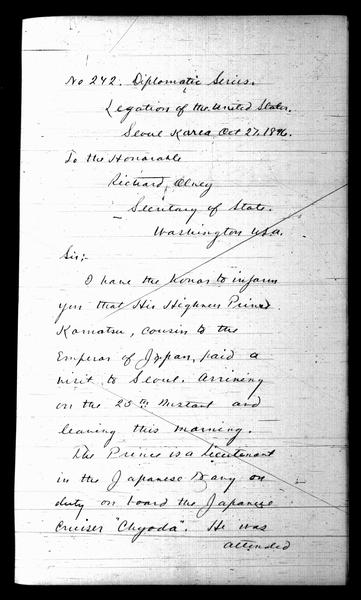 No 242. Diplomatic Series.
Legation of the United States.
Seoul Korea Oct 27, 1896.
To the Honorable
Richard Olney
Secretary of State.
Washington U.S.A.
Sir:-
I have the honor to inform
you that His Highness Prince
Komatsu, cousin to the
Emperor of Japan, paid a
visit to Seoul. Arriving
on the 25th Instant and
leaving this morning.
The Prince is a Lieutenant
in the Japanese Navy on
duty on board the Japanese
Cruiser "Chyoda". He was
attended